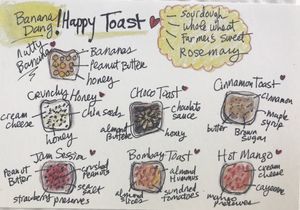 Banana Dang!
Happy Toast
sourdough
whole wheat
Farmer's Sweet
Rosemary
Nutty Banana
Bananas
Peanut Butter
honey
Crunchy Honey
cream cheese
chia seeds
honey
Choco Toast
chocolate sauce
almond Butter
honey
Cinnamon Toast
cinnamon
maple syrup
butter
Brown sugar
Jam Session
Peanut Butter
crushed Peanuts
sea salt
strawberry preserves
Bombay Toast
almond Hummus
almond slices
sundried tomatoes
Hot Mango
cream cheese
cayenne
mango preserves